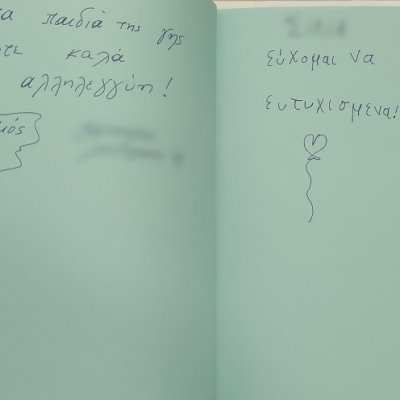 παιδιά της γης
καλά
αλληλεγγύη !
εύχομαι να
ευτυχισμενα!